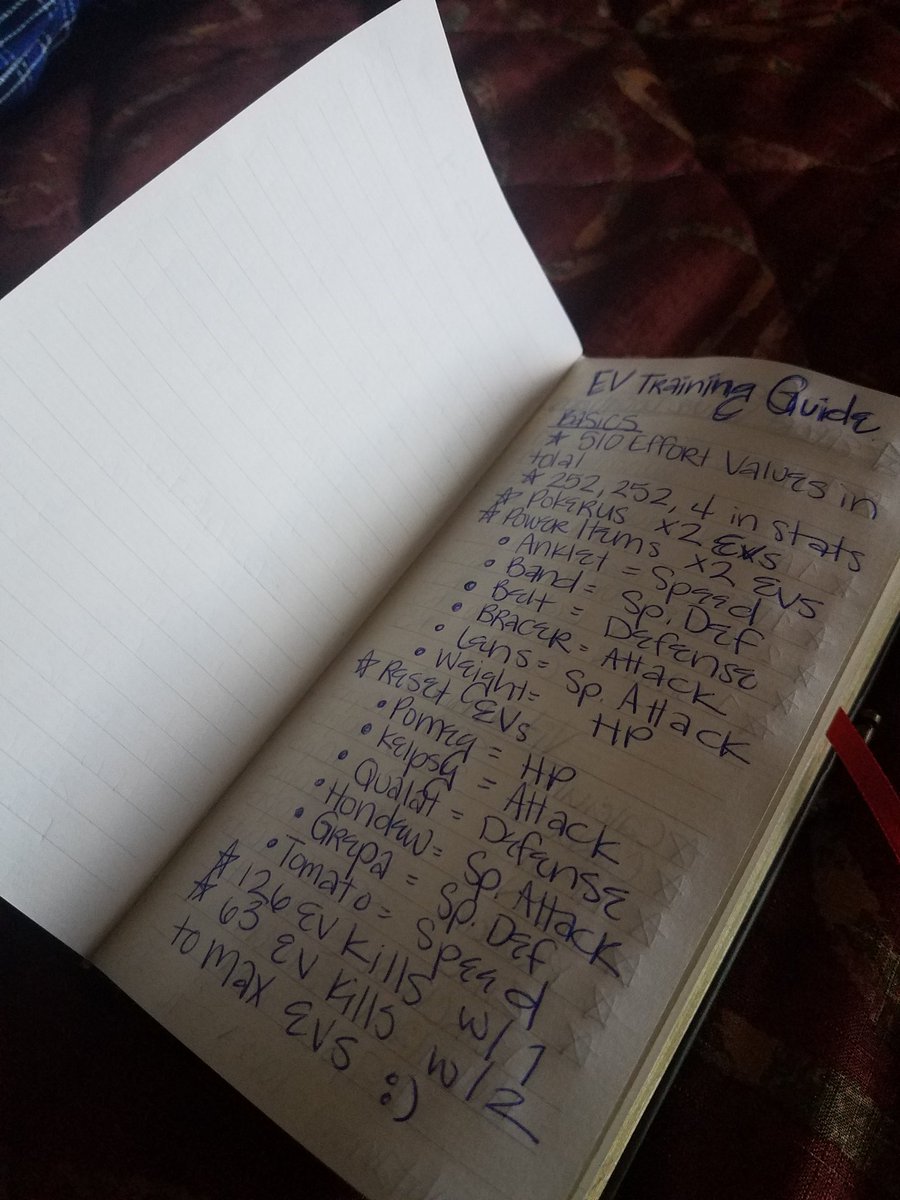 EV Training Guide
Basics
* 510 Effort Values in
total
* 252, 252, 4 in stats
* Pokerus x2 EVs
* Power Items x2 EVs
• Anklet = Speed
• Band = Sp. Def
• Belt = Defense
• Bracer = Attack
• Lens = Sp. Attack
• Weight = HP
* Reset EVs
• Pomeg = HP
• Kelpsy = Attack
• Qualot = Defense
• Hondew = Sp. Attack
• Grepa = Sp. Def
• Tomato = Speed
* 126 EV Kills w/ 1
* 63 EV Kills w/2
to max EVs :)